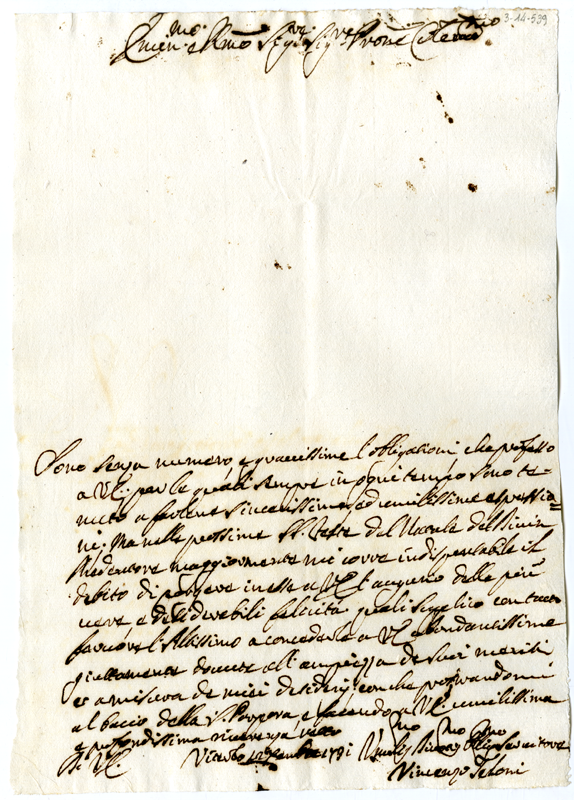 3-14-539
Emin.mo e R.mo Sig.re Sig.re P.rone Col.mo
Sono senza numero, e gravissime l'obligationi che professo
a V.E. per le quali sempre in ogni tempo sono te=
nuto a farlene sincerissime, ed umilissime espressio=
ni. Ma nelle prossime SS. Feste del Natale del Divin
Redentore maggiormente mi corre indispensabile il
debito di porgere in esse a V.E. l'augurio delle più
vere, e desiderabili felicità quali supplico con tutto
fervore l'Altissimo a concederle a V.E. abondantissime
giustamente dovute all'ampiezza de suoi meriti
e a misura de miei desiderij; con che prostrandomi
al baccio della S. Porpora, e facendo a V.E. umilissima
e profondissima riverenza resto
Di V.E.
Viterbo Xbre
Umiliss.mo Devot.mo Oblig.mo Servitore
Vincenzo